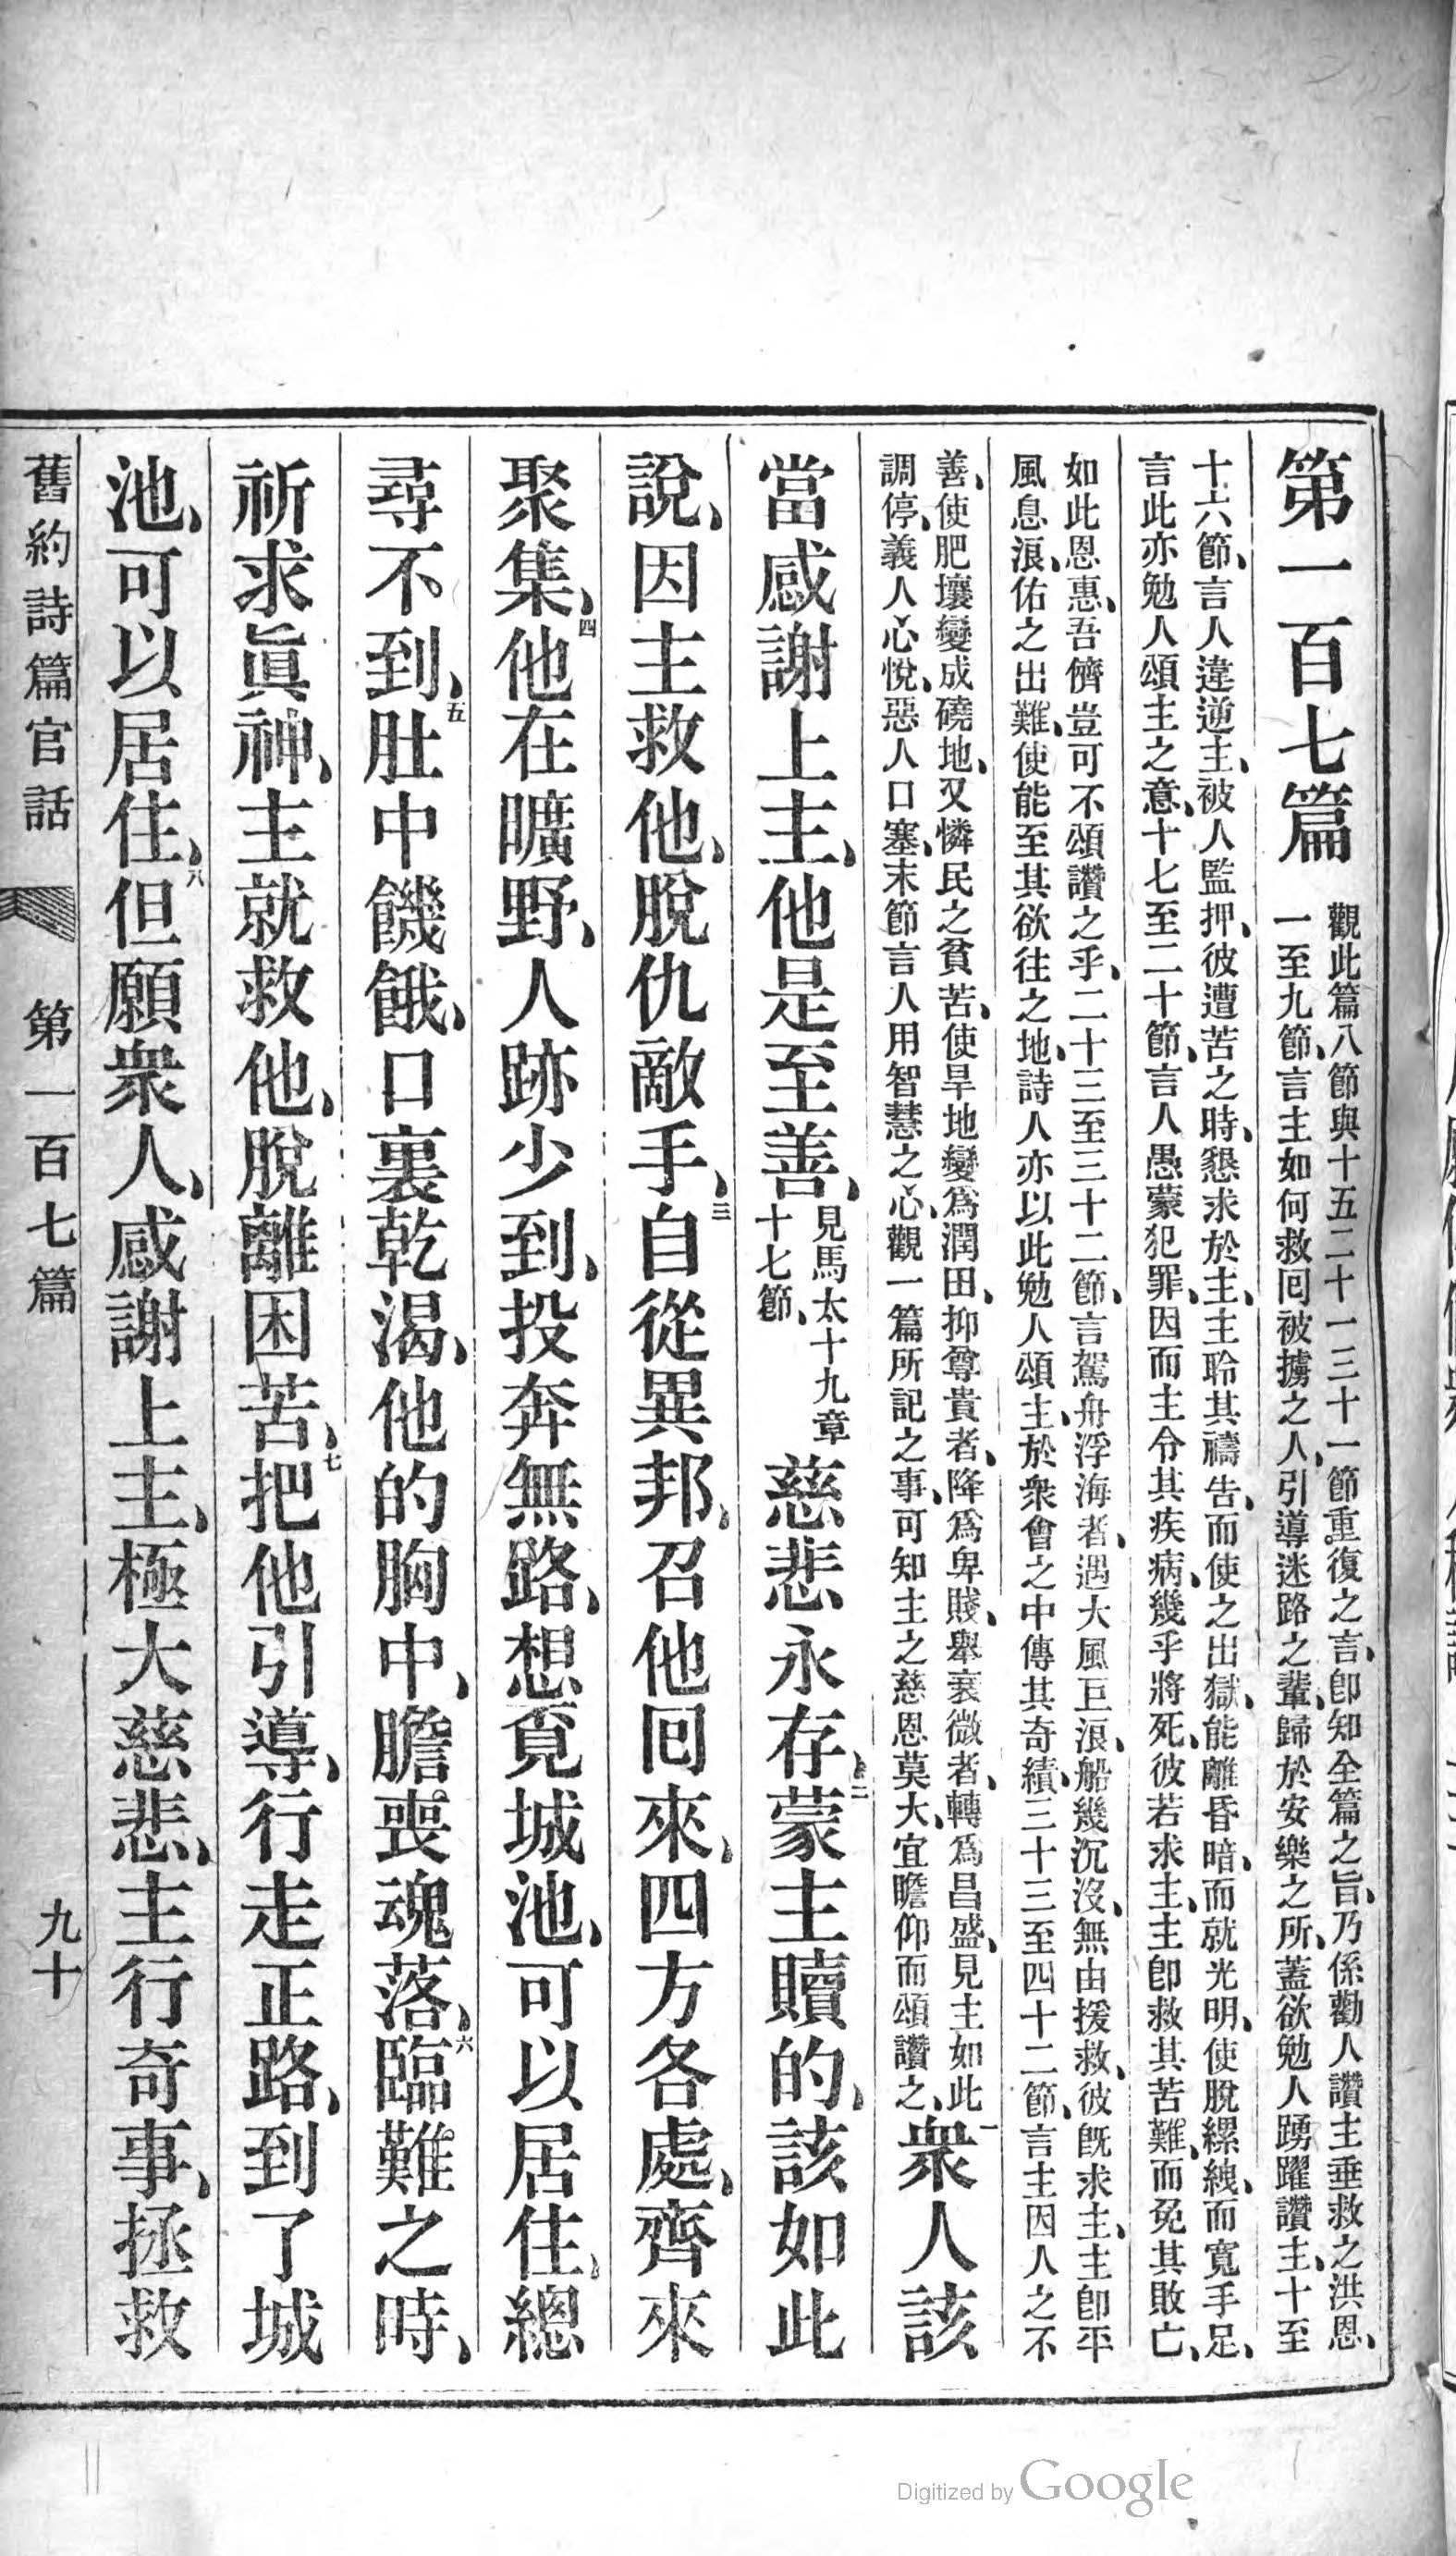 第一百七篇
觀此篇八節與十五二十一三十一節重復之言、卽知全篇之旨、乃係勸人讚主垂救之洪恩、
一至九節、言主如何救囘被擄之人、引導迷路之輩、歸於安樂之所、蓋欲勉人踴躍讚主、十至
十六節、言人違逆主、被人監押、彼遭苦之時、懇求於主、主聆其禱告、而使之出獄、能離昏暗、而就光明、使脫縲絏、而寬手足、
言此亦勉人頌主之意、十七至二十節、言人愚蒙犯罪、因而主令其疾病、幾乎將死、彼若求主、主卽救其苦難、而免其敗亡、
如此恩惠、吾儕豈可不頌讚之乎、二十三至三十二節、言駕舟浮海者、遇大風巨浪、船幾沉沒、無由援救、彼旣求主、主卽平
風息浪、佑之出難、使能至其欲往之地、詩人亦以此勉人頌主、於衆會之中傳其奇績、三十三至四十二節、言主因人之不
善、使肥壤變成磽地、又憐民之貧苦、使旱地變爲潤田、抑尊貴者、降爲卑賤、舉衰微者、轉爲昌盛、見主如此
調停、義人心悅、惡人口塞、末節言人用智慧之心、觀一篇所記之事、可知主之慈恩莫大、宜瞻仰而頌讚之、
一衆人該
當感謝上主、他是至善、見馬太十九章
十七節、慈悲永存、二蒙主贖的、該如此
說、因主救他、脫仇敵手、三自從異邦、召他囘來、四方各處、齊來
聚集、四他在曠野、人跡少到、投奔無路、想覓城池、可以居住、總
尋不到、五肚中饑餓、口裏乾渴、他的胸中、膽喪魂落、六臨難之時、
祈求眞神、主就救他、脫離困苦、七把他引導、行走正路、到了城
池、可以居住、八但願衆人、感謝上主、極大慈悲、主行奇事、拯救
舊約詩篇官話 第一百七篇 九十
Digitized by Google